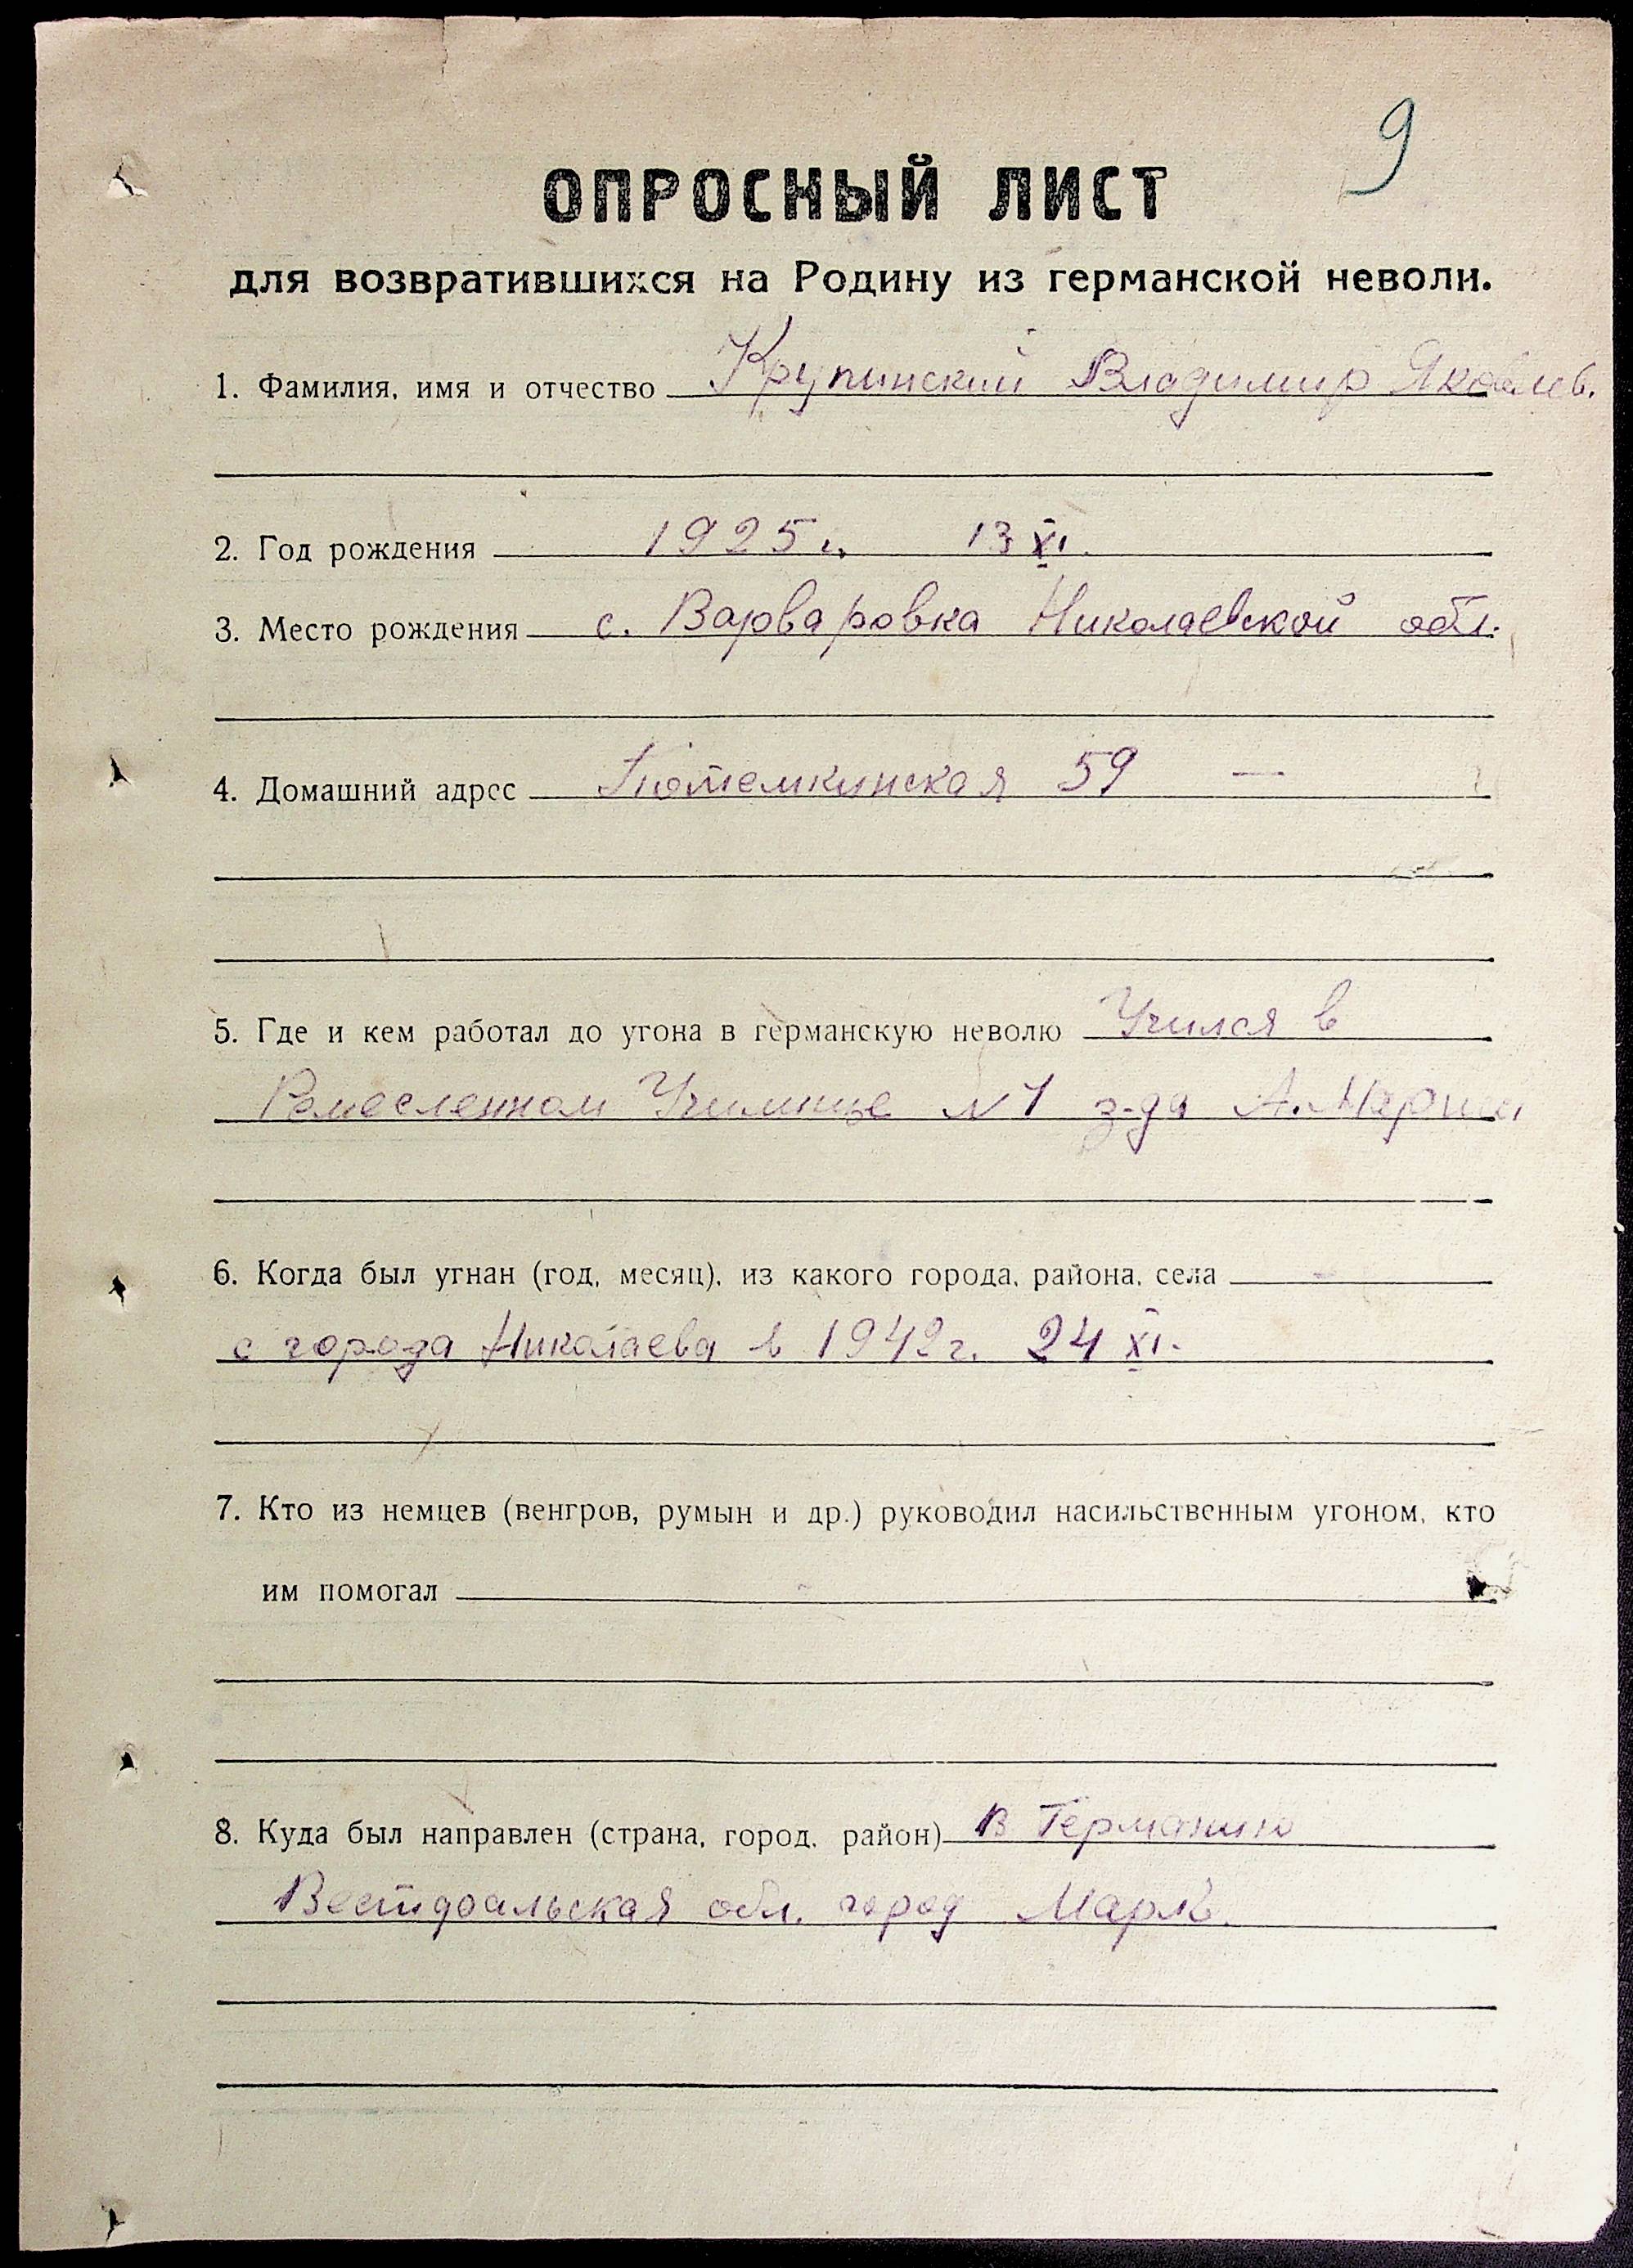 9
ОПРОСНЫЙ ЛИСТ
для возвратившихся на Родину из германской неволи.
1. Фамилия, имя и отчество Крупинский Владимир Яковлев.
2. Год рождения 1925 г. 13 XI.
3. Место рождения с. Варваровка Николаевской обл.
4. Домашний адрес Потемкинская 59 —
5. Где и кем работал до угона в германскую неволю Учился в
Ремесленном Училище N 1 з-да А. Марти
6. Когда был угнан (год, месяц), из какого города, района, села
с города Николаева в 1942 г. 24 XI.
7. Кто из немцев (венгров, румын и др.) руководил насильственным угоном, кто
им помогал
8. Куда был направлен (страна, город, район) В Германию
Вестдфальская обл. город Марль.